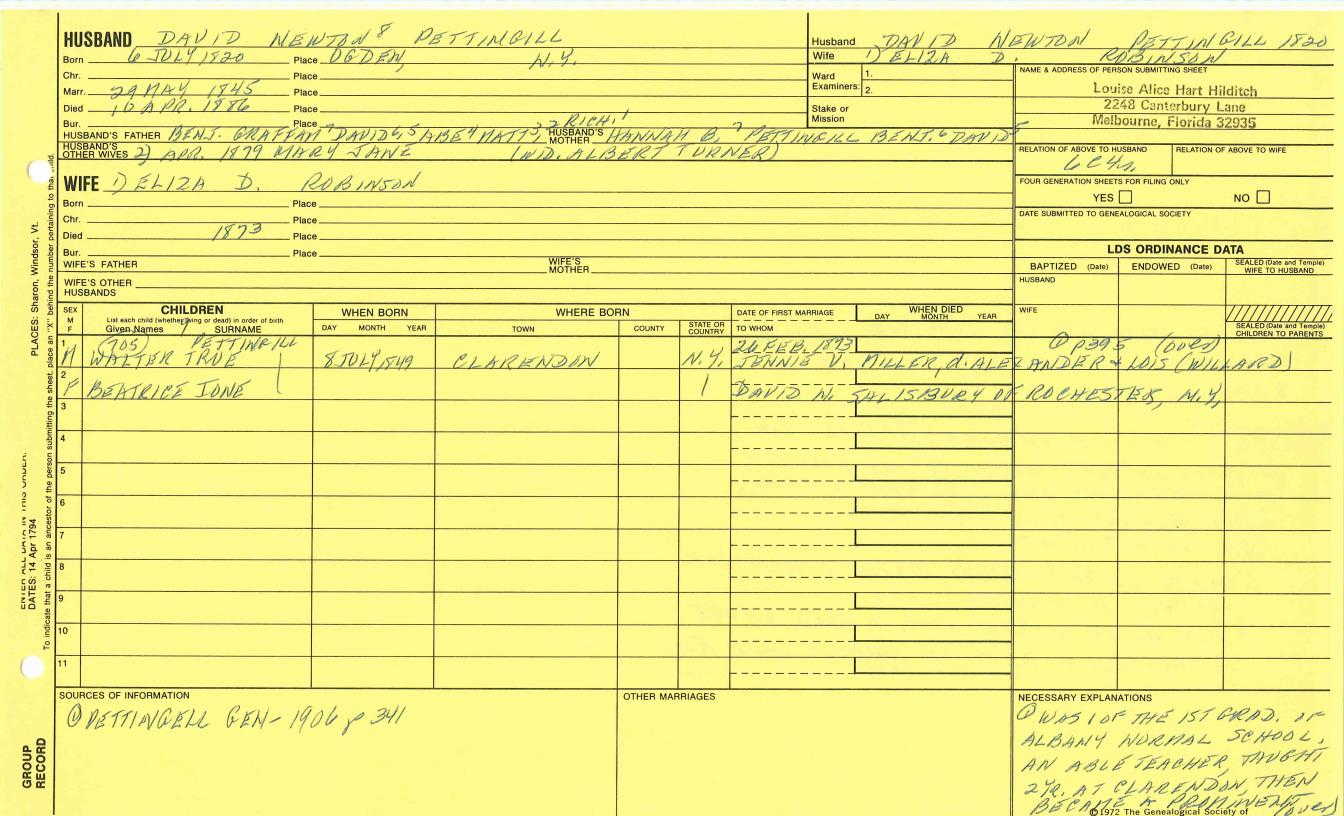 HUSBAND DAVID NEWTON 8 PETTINGILL
Born 6 JULY 1820 Place OGDEN, N.Y.
Chr. Place
Marr. 29 MAY 1845 Place
Died 10 APR. 1886 Place
Bur. Place
HUSBAND'S FATHER BENJ. GRAFFAM 7 DAVID 6, 5 ABE 4 MATT 3, 2 RICH. 1 HUSBAND'S MOTHER HANNAH B. 7 PETTINGILL BENJ. 6 DAVID 5
HUSBAND'S OTHER WIVES 2) APR. 1879 MARY JANE (WID. ALBERT TURNER)
Husband DAVID NEWTON PETTINGILL 1820
Wife 1) ELIZA D. ROBINSON
Ward Examiners: 1.
2.
Stake or Mission
NAME & ADDRESS OF PERSON SUBMITTING SHEET
Louise Alice Hart Hilditch
2248 Canterbury Lane
Melbourne, Florida 32935
RELATION OF ABOVE TO HUSBAND RELATION OF ABOVE TO WIFE
6C4r
FOUR GENERATION SHEETS FOR FILING ONLY
YES NO
DATE SUBMITTED TO GENEALOGICAL SOCIETY
WIFE 1) ELIZA D. ROBINSON
Born Place
Chr. Place
Died 1873 Place
Bur. Place
WIFE'S FATHER WIFE'S MOTHER
WIFE'S OTHER HUSBANDS
LDS ORDINANCE DATA
BAPTIZED (Date) ENDOWED (Date) SEALED (Date and Temple) WIFE TO HUSBAND
HUSBAND
WIFE
SEALED (Date and Temple) CHILDREN TO PARENTS
SEX M F
CHILDREN
List each child (whether living or dead) in order of birth
Given Names SURNAME
WHEN BORN
DAY MONTH YEAR
WHERE BORN
TOWN COUNTY STATE OR COUNTRY
DATE OF FIRST MARRIAGE
TO WHOM
WHEN DIED
DAY MONTH YEAR
1 (705) 9 PETTINGILL 26 FEB. 1893 ① p395 (over)
M WALTER TRUE 8 JULY 1849 CLARENDON N.Y. JENNIE V. MILLER, d. ALEXANDER & LOIS (WILLARD)
2
F BEATRICE IONE DAVID N. SALISBURY OF ROCHESTER, N.Y.
3
4
5
6
7
8
9
10
11
SOURCES OF INFORMATION
① PETTINGELL GEN- 1906 p 341
OTHER MARRIAGES
NECESSARY EXPLANATIONS
① WAS 1 OF THE 1ST GRAD. OF
ALBANY NORMAL SCHOOL,
AN ABLE TEACHER, TAUGHT
2 Yr. AT CLARENDON, THEN
BECAME A PROMINENT (over)
©1972 The Genealogical Society of
PLACES: Sharon, Windsor, Vt.
ENTER ALL DATA IN THIS ORDER:
DATES: 14 Apr 1794
To indicate that a child is an ancestor of the person submitting the sheet, place an "X" behind the number pertaining to that child.
GROUP RECORD